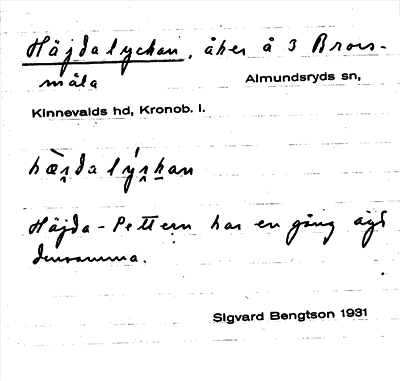 Häjdalyckan, åker å 3 Brors-
måla Almundsryds sn,
Kinnevalds hd, Kronob. l.
Häjda-Pettern har en gång ägt
densamma.
Sigvard Bengtson 1931